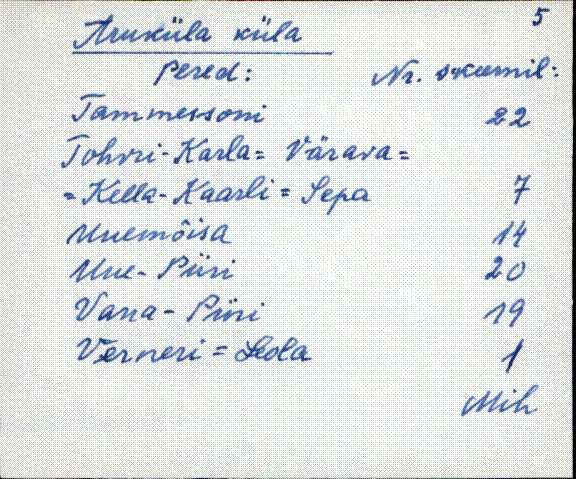 5
Aruküla küla
Pered: Nr. skeemil:
Tammessoni 22
Tohvri-Karla= Värava=
=Kella-Kaarli= Sepa 7
Uuemõisa 14
Uue-Piiri 20
Vana-Piiri 19
Verneri=Leola 1
Mih